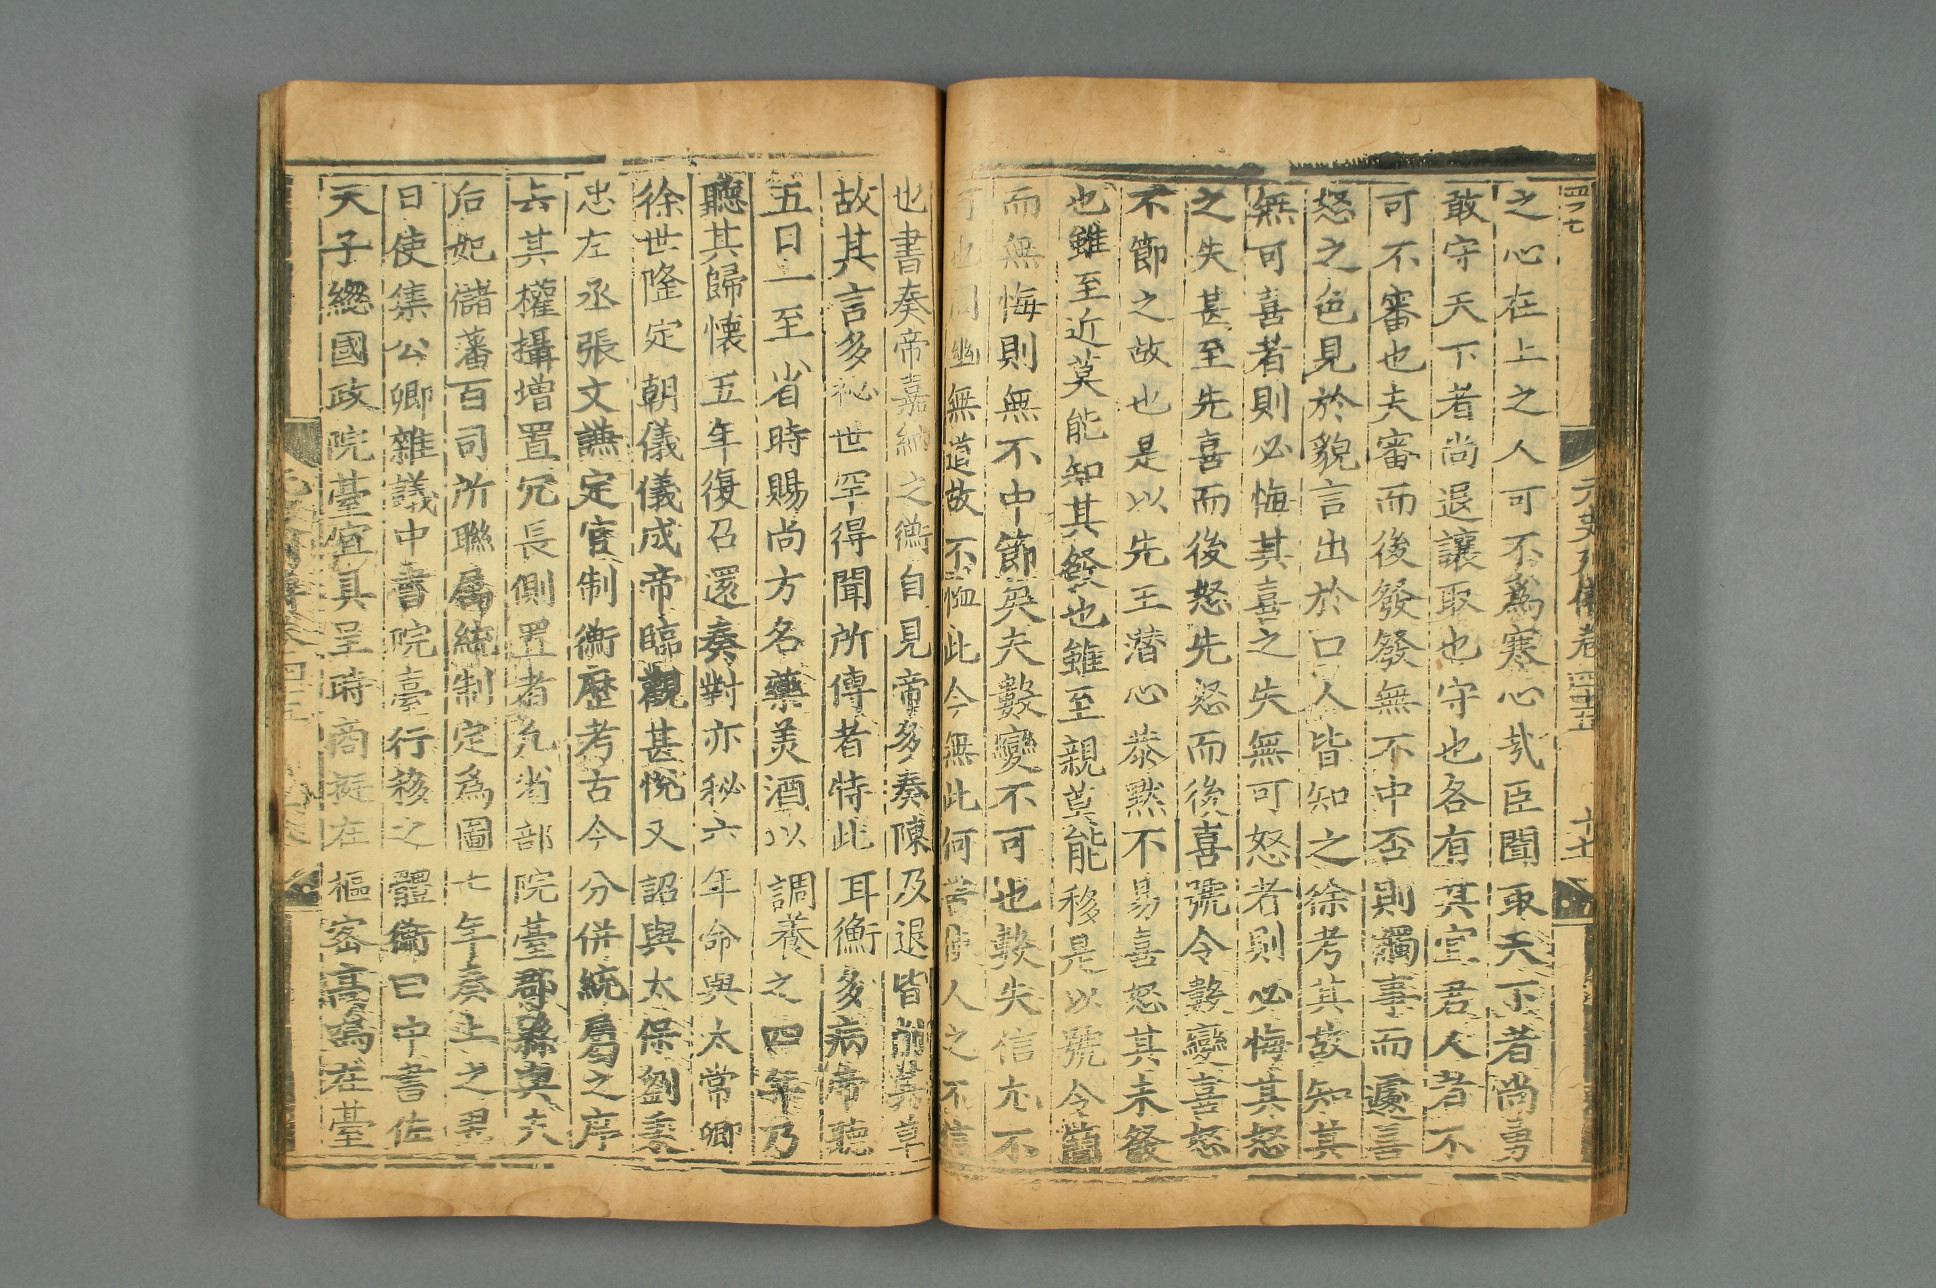 元史列傳卷四十五 十七
之心在上之人可不爲寒心㢤臣聞取天下者尚勇
敢守天下者尚退讓取也守也各有其宜君人者不
可不審也夫審而後發發無不中否則觸事而遽喜
怒之色見於貌言出於口人皆知之徐考其故知其
無可喜者則必悔其喜之失無可怒者則必悔其怒
之失甚至先喜而後怒先怒而後喜號令數變喜怒
不節之故也是以先王潜心恭黙不易喜怒其未發
也雖至近莫能知其發也雖至親莫能移是以號令簡
而無悔則無不中節矣夫數變不可也數失信尤不
可也周幽無道故不恤此今無此何苦使人之不信
也書奏帝嘉納之衡自見帝多奏陳及退皆削其草
故其言多秘世罕得聞所傳者特此耳衡多病帝聽
五日一至省時賜尚方名藥美酒以調養之四年乃
聽其歸懷五年復召還奏對亦秘六年命與太常卿
徐世隆定朝儀儀成帝臨觀甚悅又詔與太保劉秉
忠左丞張文謙定官制衡歷考古今分併統屬之序
去其權攝增置冗長側置者凢省部院臺郡縣與夫
后妃儲藩百司所聯屬統制定爲圖七年奏上之翌
日使集公卿雜議中書院臺行移之體衡曰中書佐
天子緫國政院臺宜具呈時商挺在樞密高鳴在臺